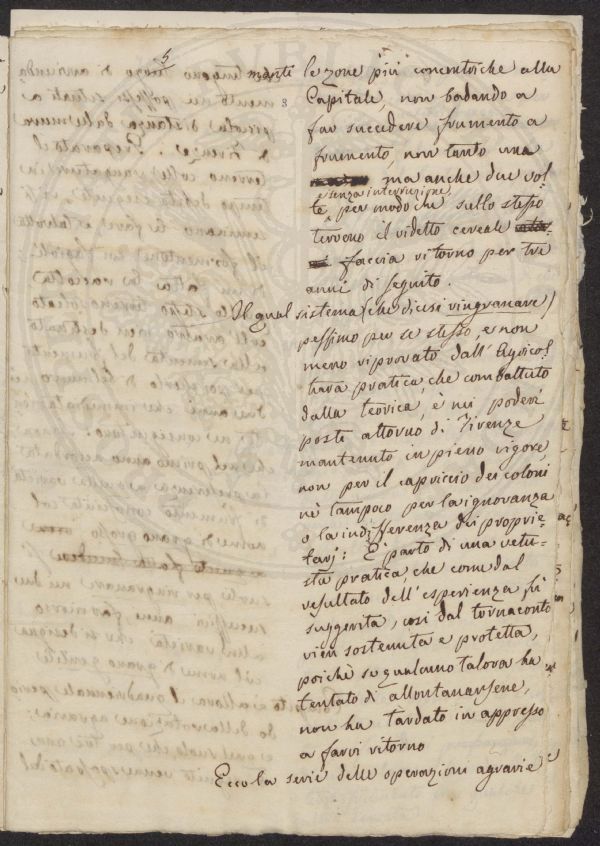 5
8
le zone più concentriche alla
Capitale, non badando a
far succedere frumento a
frumento, non tanto una
ma anche due vol
e senza interruzione
te, per modo che sullo stesso
terreno il videtto cereale
faccia ritorno per tre
anni di seguito.
Il qual sistema (che dicesi vingranare)
pessimo per se stesso, e non
meno riprovato dall'Agricol
tura pratica, che combattuto
dalla teorica, è nei poderi
posti attorno di Firenze
mantenuto in pieno vigore,
non per il capriccio dei coloni
nè tampoco per la ignoranza
o la indifferenza dei proprie-
tarj: È parto di una vetu-
stà pratica, che come dal
resultato dell'esperienza fù
suggerita, così dal tornaconto
vien sostenuta e protetta,
poichè se qualcuno talora ha
tentato di allontanarsene,
non ha tardato in appresso
a farvi ritorno
Ecco la serie delle operazioni agrarie